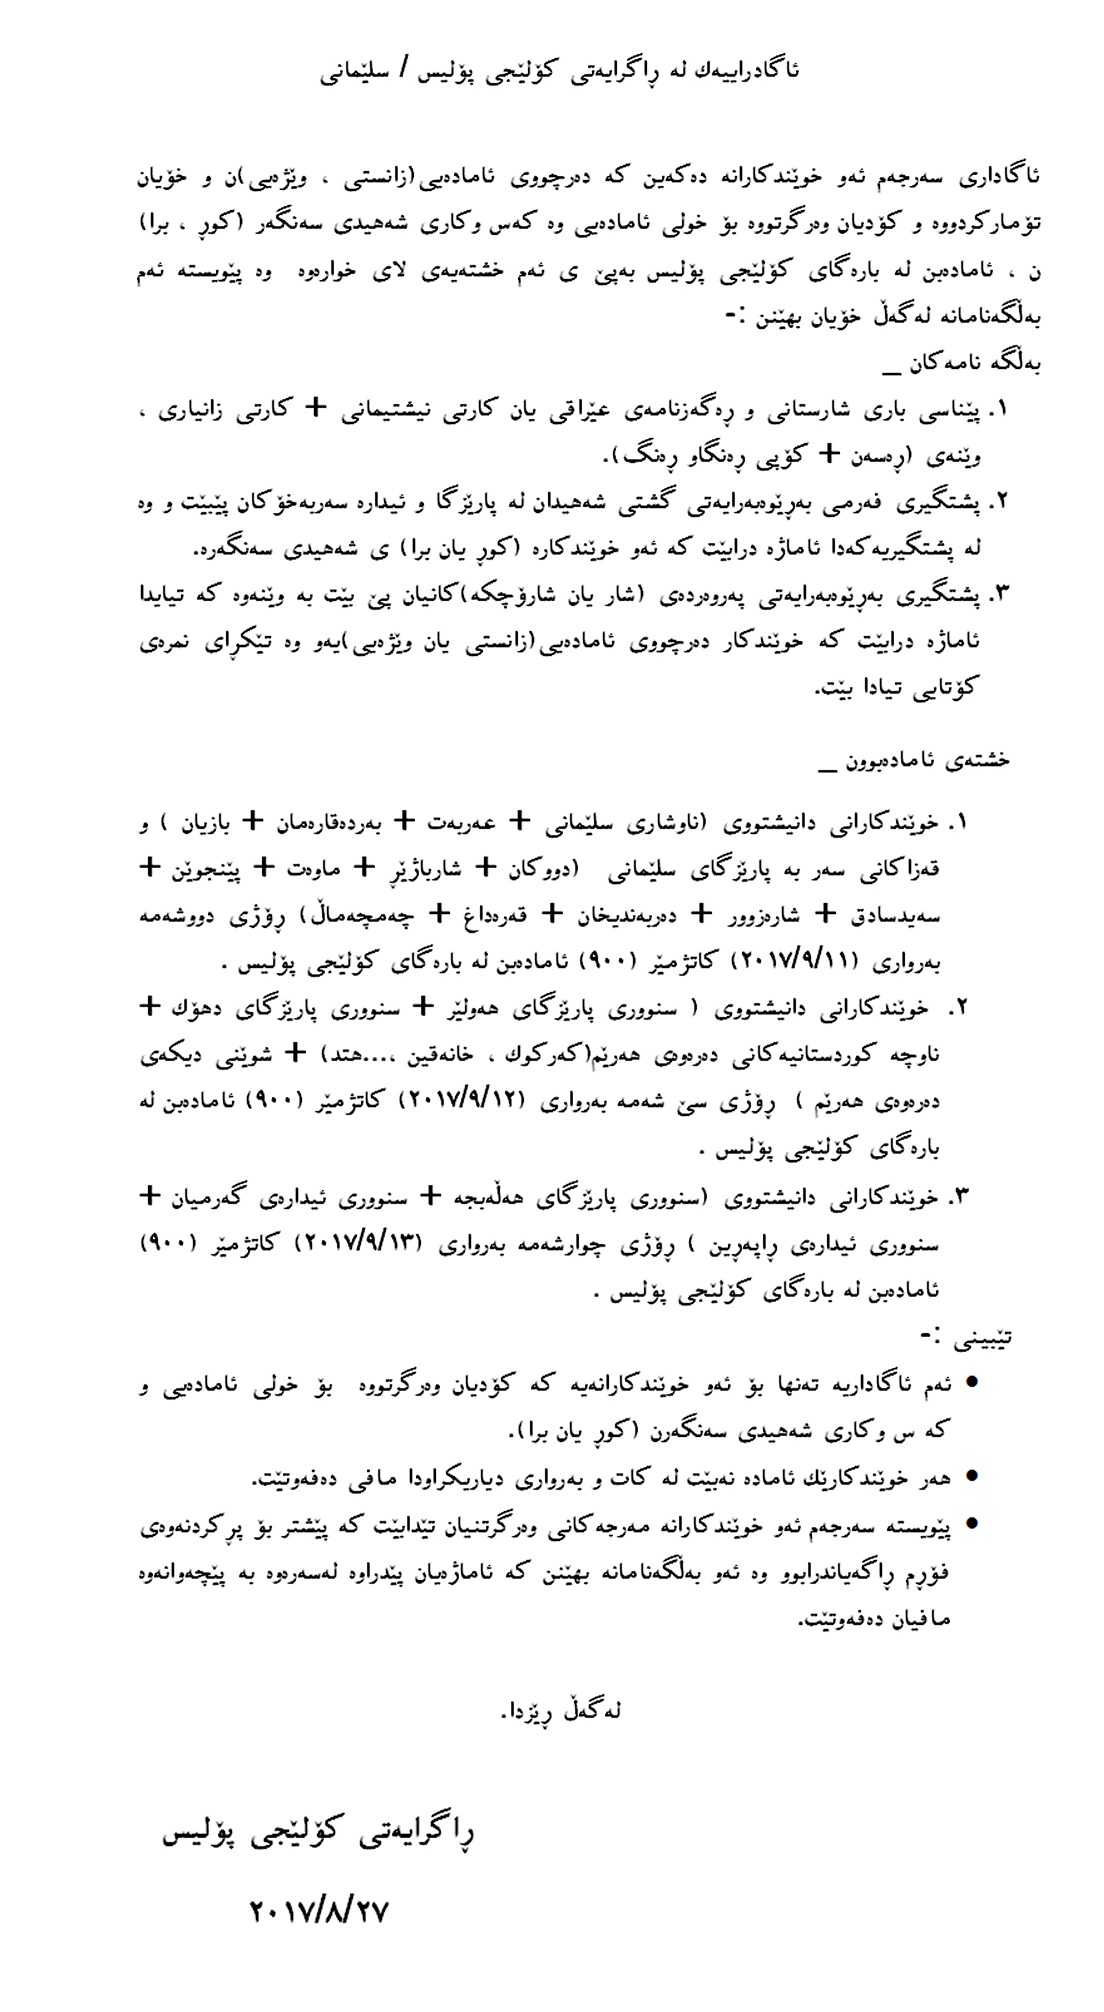 ئاگاداراییەك لە ڕاگرایەتی کۆلێجی پۆلیس / سلێمانی
ئاگاداری سەرجەم ئەو خوێندکارانە دەکەین کە دەرچووی ئامادەیی(زانستی ، وێژەیی)ن و خۆیان
تۆمارکردووە و کۆدیان وەرگرتووە بۆ خولی ئامادەیی وە کەس وکاری شەهیدی سەنگەر (کوڕ ، برا)
ن ، ئامادەبن لە بارەگای کۆلێجی پۆلیس بەپێ ی ئەم خشتەیەی لای خوارەوە وە پێویستە ئەم
بەڵگەنامانە لەگەڵ خۆیان بهێنن :-
بەڵگە نامەکان _
١. پێناسی باری شارستانی و ڕەگەزنامەی عێراقی یان کارتی نیشتیمانی + کارتی زانیاری ،
وێنەی (ڕەسەن + کۆپی ڕەنگاو ڕەنگ).
٢. پشتگیری فەرمی بەڕێوەبەرایەتی گشتی شەهیدان لە پارێزگا و ئیدارە سەربەخۆکان پێبێت و وە
لە پشتگیریەکەدا ئاماژە درابێت کە ئەو خوێندکارە (کوڕ یان برا) ی شەهیدی سەنگەرە.
٣. پشتگیری بەڕێوەبەرایەتی پەروەردەی (شار یان شارۆچکە)کانیان پێ بێت بە وێنەوە کە تیایدا
ئاماژە درابێت کە خوێندکار دەرچووی ئامادەیی(زانستی یان وێژەیی)یەو وە تێکڕای نمرەی
کۆتایی تیادا بێت.
خشتەی ئامادەبوون _
١. خوێندکارانی دانیشتووی (ناوشاری سلێمانی + عەربەت + بەردەقارەمان + بازیان ) و
قەزاکانی سەر بە پارێزگای سلێمانی (دووکان + شارباژێڕ + ماوەت + پێنجوێن +
سەیدسادق + شارەزوور + دەربەندیخان + قەرەداغ + چەمچەماڵ) ڕۆژی دووشەمە
بەرواری (٢٠١٧/٩/١١) کاتژمێر (٩٠٠) ئامادەبن لە بارەگای کۆلێجی پۆلیس .
٢. خوێندکارانی دانیشتووی ( سنووری پارێزگای هەولێر + سنووری پارێزگای دهۆك +
ناوچە کوردستانیەکانی دەرەوەی هەرێم(کەرکوك ، خانەقین ،...هتد) + شوێنی دیکەی
دەرەوەی هەرێم ) ڕۆژی سێ شەمە بەرواری (٢٠١٧/٩/١٢) کاتژمێر (٩٠٠) ئامادەبن لە
بارەگای کۆلێجی پۆلیس .
٣. خوێندکارانی دانیشتووی (سنووری پارێزگای هەڵەبجە + سنووری ئیدارەی گەرمیان +
سنووری ئیدارەی ڕاپەڕین ) ڕۆژی چوارشەمە بەرواری (٢٠١٧/٩/١٣) کاتژمێر (٩٠٠)
ئامادەبن لە بارەگای کۆلێجی پۆلیس .
تێبینی :-
• ئەم ئاگاداریە تەنها بۆ ئەو خوێندکارانەیە کە کۆدیان وەرگرتووە بۆ خولی ئامادەیی و
کە س وکاری شەهیدی سەنگەرن (کوڕ یان برا).
• هەر خوێندکارێك ئامادە نەبێت لە کات و بەرواری دیاریکراودا مافی دەفەوتێت.
• پێویستە سەرجەم ئەو خوێندکارانە مەرجەکانی وەرگرتنیان تێدابێت کە پێشتر بۆ پڕکردنەوەی
فۆڕم ڕاگەیاندرابوو وە ئەو بەڵگەنامانە بهێنن کە ئاماژەیان پێدراوە لەسەرەوە بە پێچەوانەوە
مافیان دەفەوتێت.
لەگەڵ ڕێزدا.
ڕاگرایەتی کۆلێجی پۆلیس
٢٠١٧/٨/٢٧